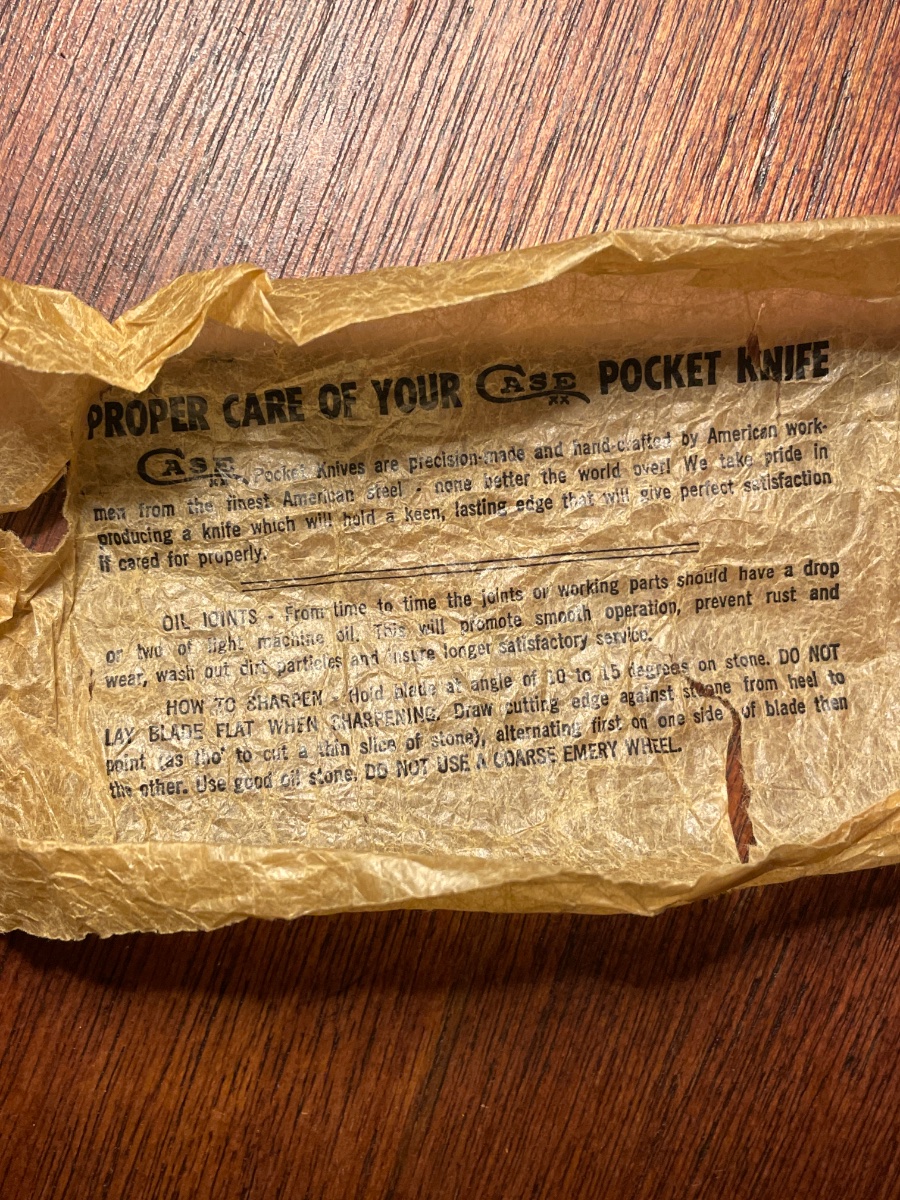 PROPER CARE OF YOUR CASE XX POCKET KNIFE
CASE XX Pocket Knives are precision-made and hand-crafted by American work-
men from the finest American steel - none better the world over! We take pride in
producing a knife which will hold a keen, lasting edge that will give perfect satisfaction
if cared for properly.
OIL JOINTS - From time to time the joints or working parts should have a drop
or two of light machine oil. This will promote smooth operation, prevent rust and
wear, wash out dirt particles and insure longer satisfactory service.
HOW TO SHARPEN - Hold blade at angle of 10 to 15 degrees on stone. DO NOT
LAY BLADE FLAT WHEN SHARPENING. Draw cutting edge against stone from heel to
point (as tho' to cut a thin slice of stone), alternating first on one side of blade then
the other. Use good oil stone. DO NOT USE A COARSE EMERY WHEEL.